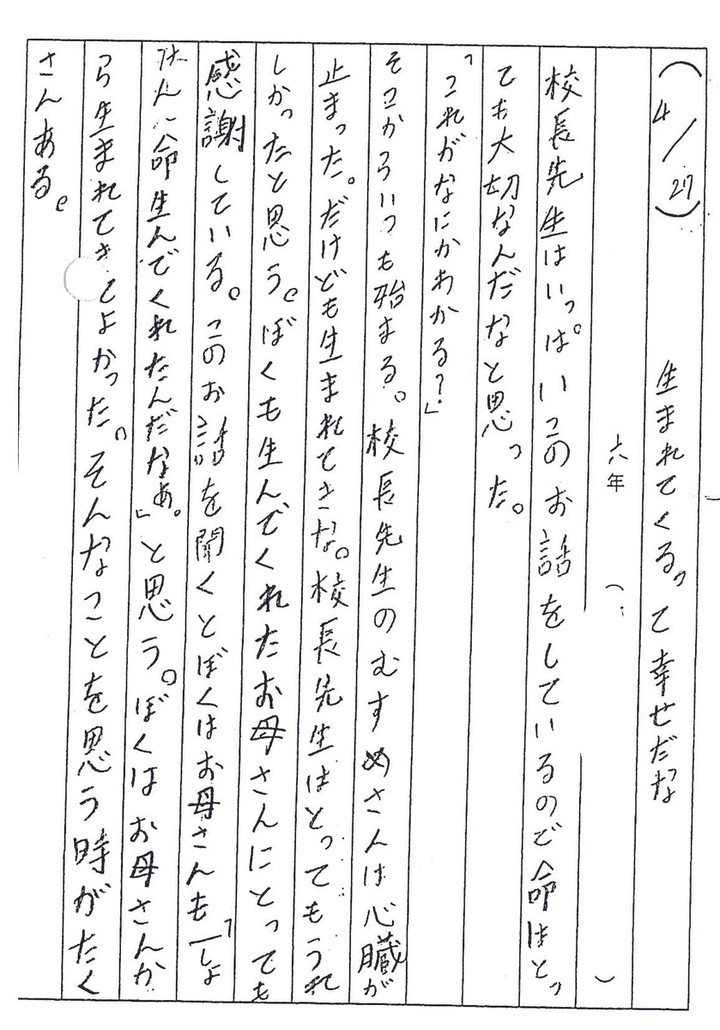 (4/27)　生まれてくるって幸せだな
六年（　　）
校長先生はいっぱいこのお話をしているので命はとっ
ても大切なんだなと思った。
「これがなにかわかる？」
そこからいつも始まる。校長先生のむすめさんは心臓が
止まった。だけども生まれてきた。校長先生はとってもうれ
しかったと思う。ぼくも生んでくれたお母さんにとっても
感謝している。このお話を聞くとぼくはお母さんも「一しょ
けん命生んでくれたんだなぁ。」と思う。ぼくはお母さんか
ら生まれてきてよかった。そんなことを思う時がたく
さんある。